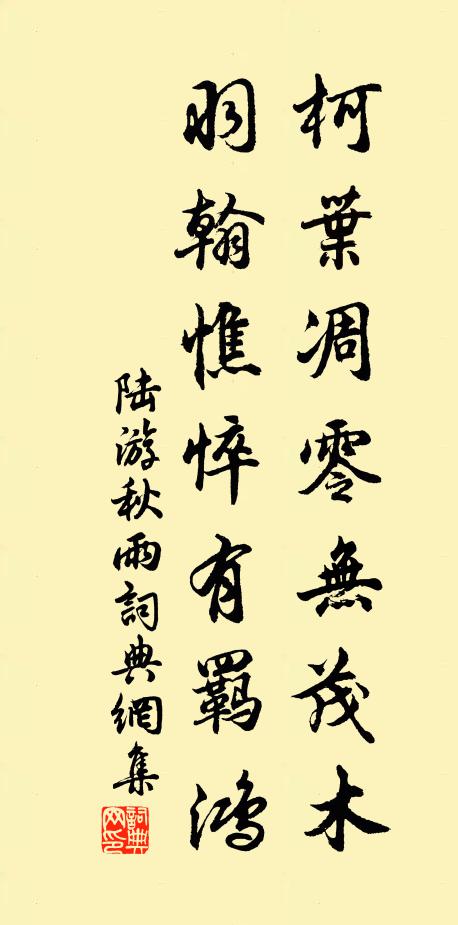 柯葉凋零無茂木
羽翰憔悴有羈鴻
陸游秋雨詞典網集
詞典网印